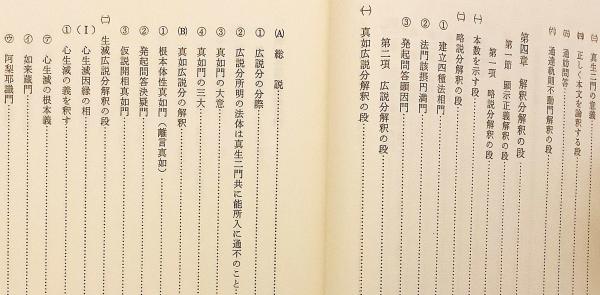 ㈢ 真生二門の意義
㈣ 正しく本文を論釈する段
㈤ 通妨問答
㈥ 通達軌則不動門解釈の段
第四章 解釈分解釈の段
第一節 顕示正義解釈の段
第一項 略説分解釈の段
㈠ 本数を示す段
㈡ 略説分解釈の段
① 建立四種法相門
② 法門該摂円満門
③ 発起問答顕因門
第二項 広説分解釈の段
㈠ 真如広説分解釈の段
(A) 総説
① 広説分の分際
② 広説分所明の法体は真生二門共に能所入に通不のこと
③ 真如門の大意
④ 真如門の三大
(B) 真如広説分の解釈
① 根本体性真如門(離言真如)
② 発起問答決疑門
③ 仮説開相真如門
㈡ 生滅広説分解釈の段
(Ⅰ) 心生滅因縁の相
① 心生滅の義を釈す
㋐ 心生滅の根本義
㋑ 如来蔵門
㋒ 阿梨耶識門